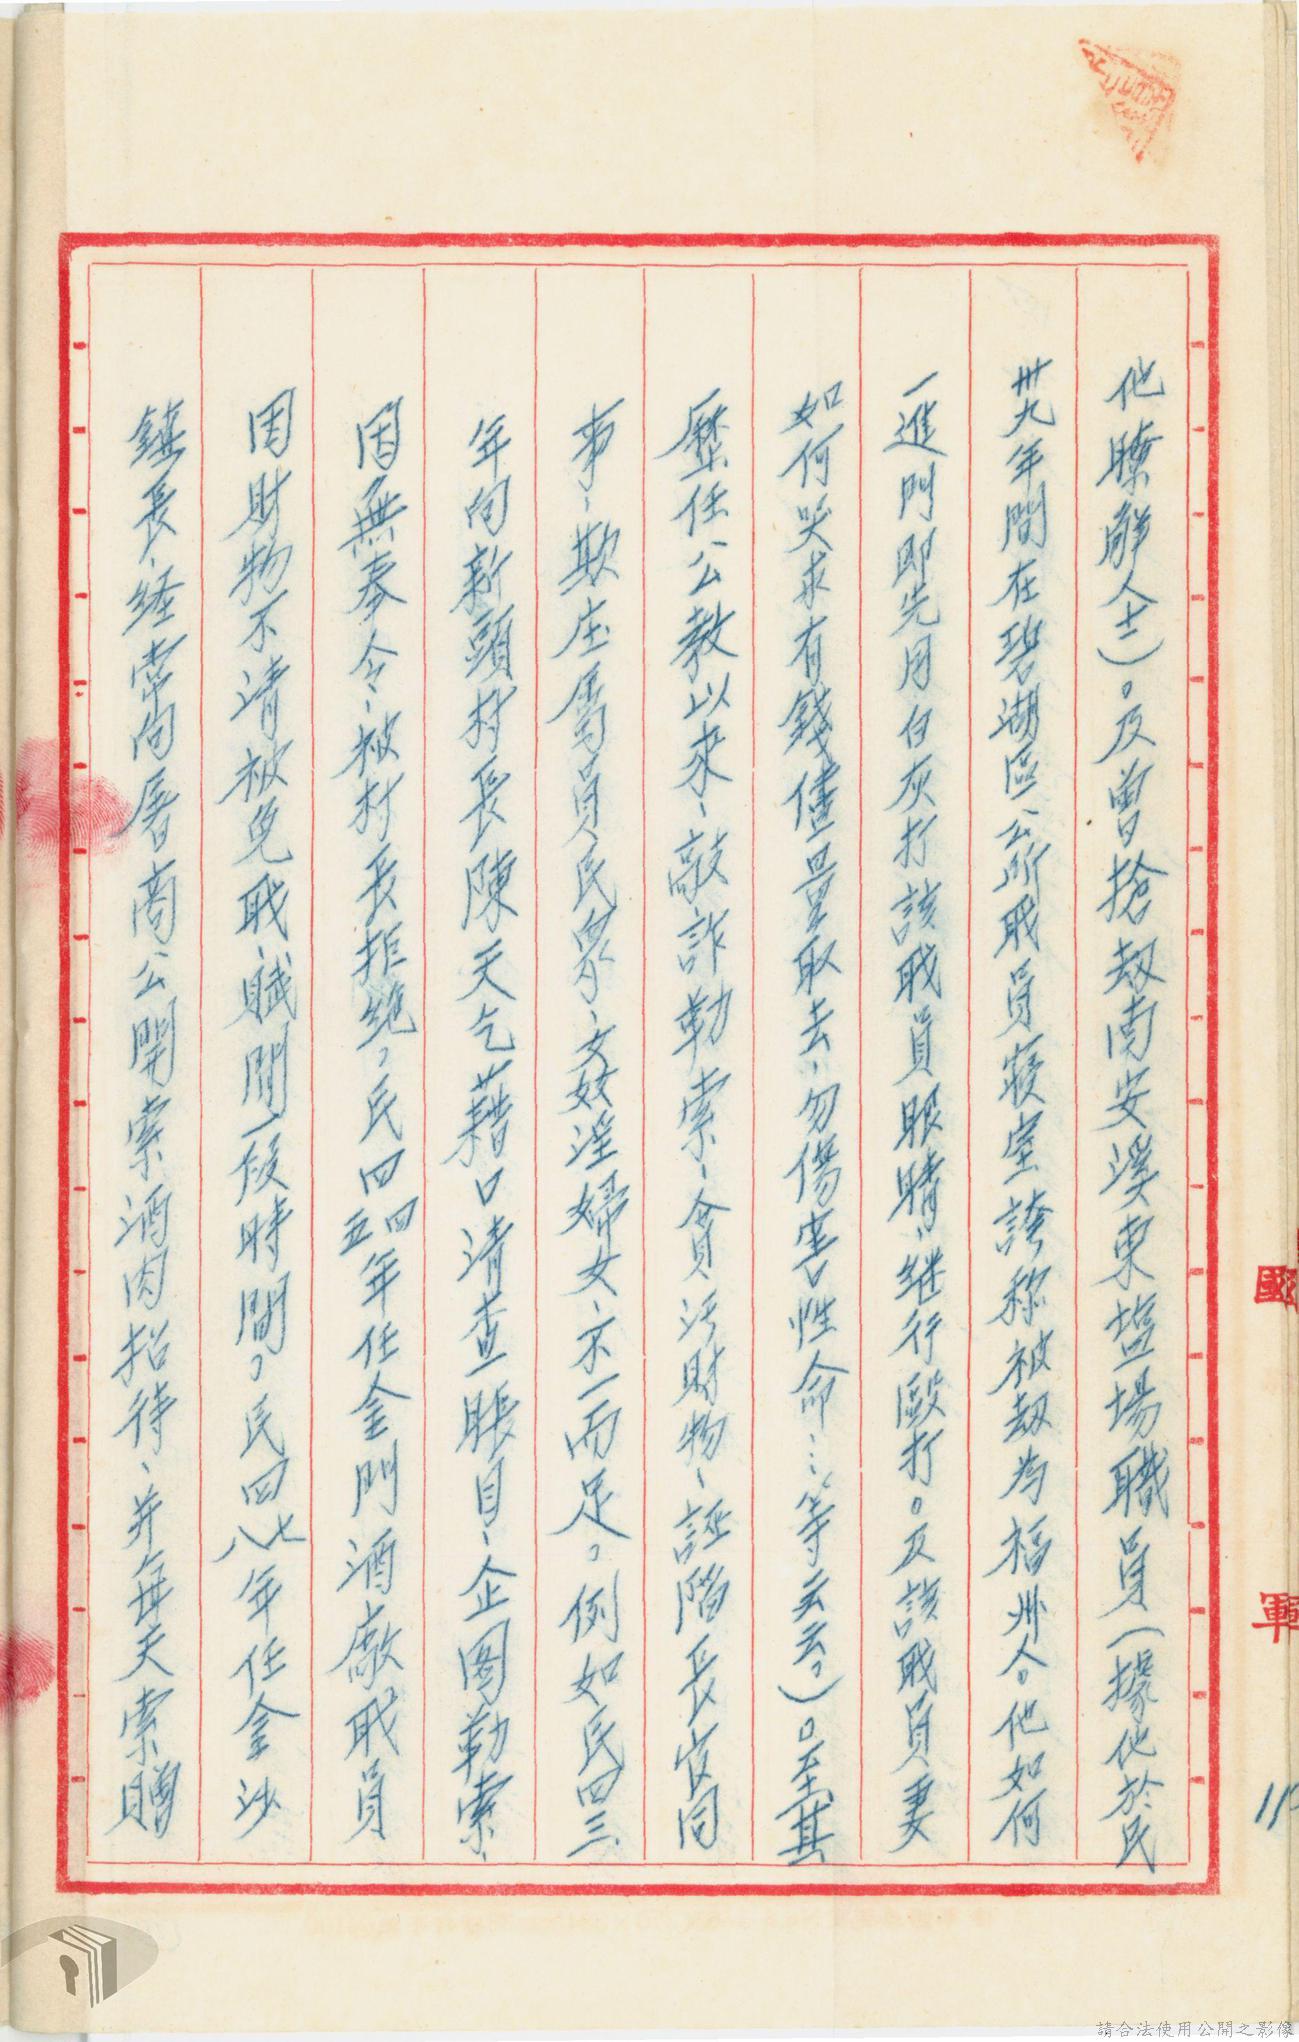 他瞭解人士）。及曾搶劫南安溪東塩場職員（據他於民
卅九年間在碧湖區公所职員寢室誇称被劫為福州人。他如何
一進門即先用白灰打該职員眼睛、继行毆打。及該职員妻
如何哭求有錢儘量取去、勿傷害性命…等云云。）。至其
歷任公教以來、敲詐勒索、貪污財物、誣陷長官同
事、欺压属員民眾、奸淫婦女、不一而足。例如民四三
年向新頭村長陳天乞藉口清查賬目、企图勒索、
因無奉令、被村長拒绝。民四四五年任金門酒廠职員
因財物不清被免职、賦閒一段時間。民四七八年任金沙
鎮長、经常向屠商公開索酒肉招待、并每天索贈
國
軍
請合法使用公開之影像